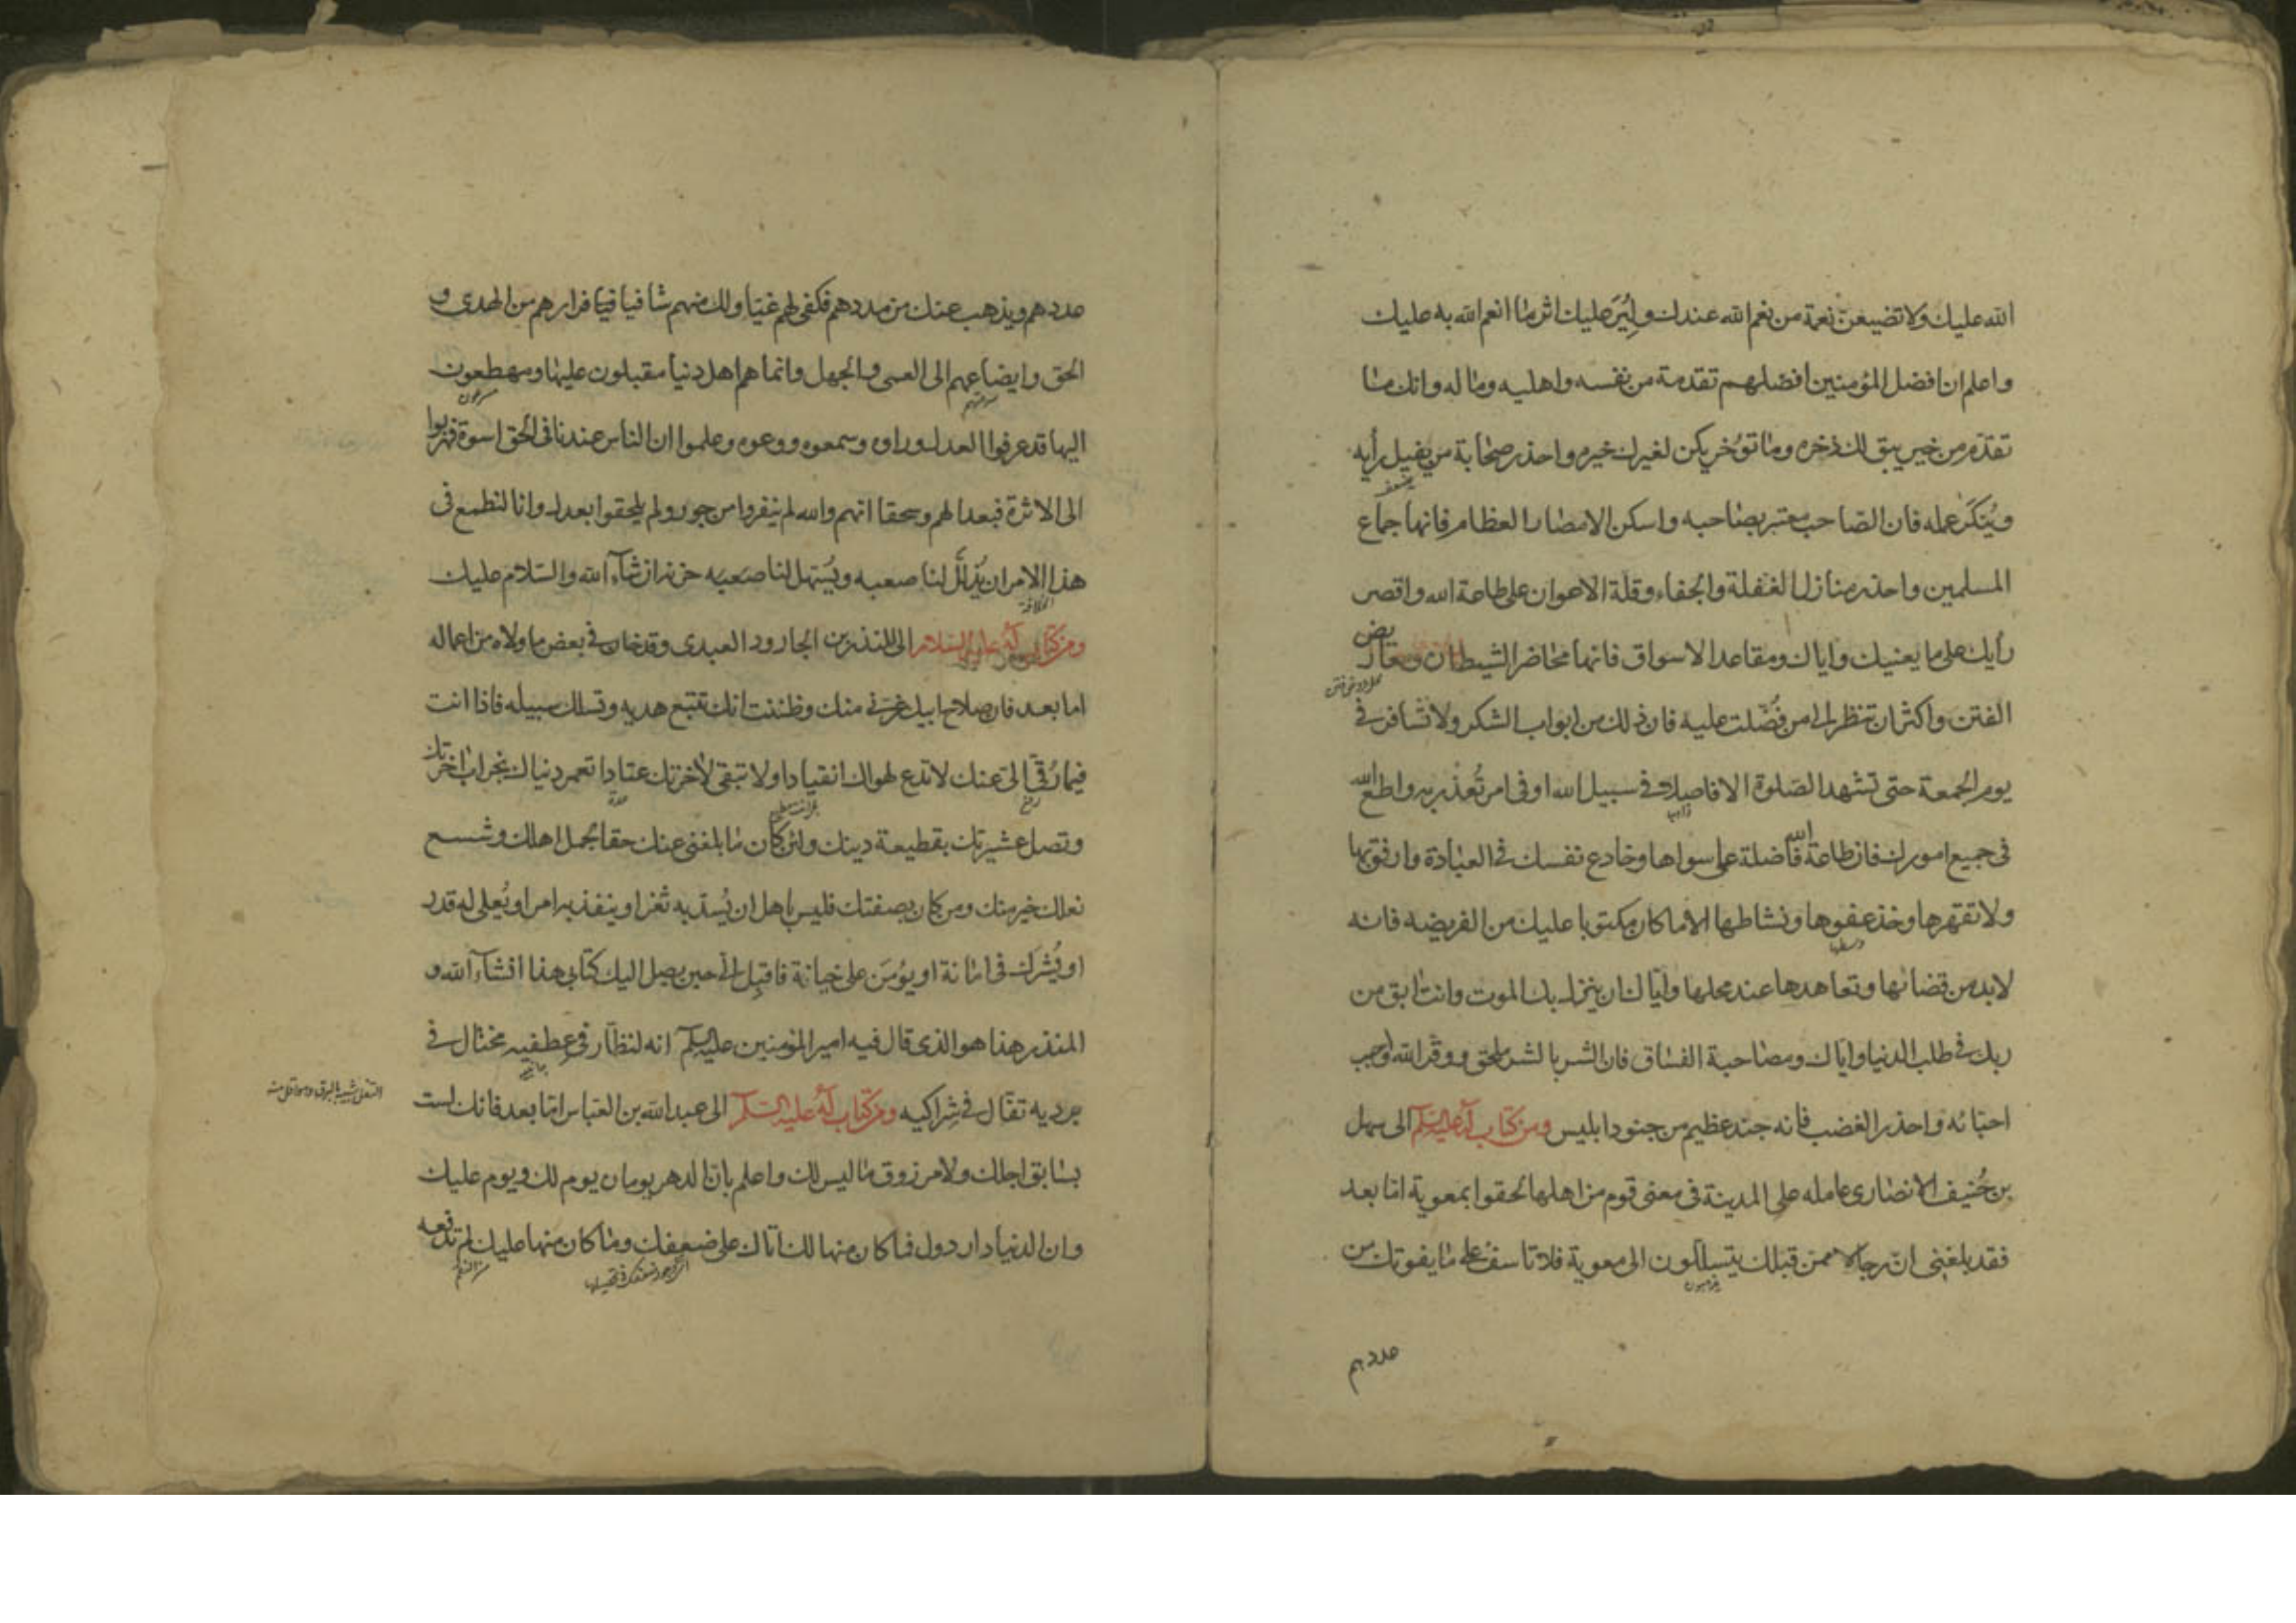 الله عليك ولا تضيعن نعمة من نعم الله عندك وليُرَ عليك اثر ما انعم الله به عليك
واعلم ان افضل المؤمنين افضلهم تقدمة من نفسه واهليه وماله وانك ما
تقدم من خير يبق لك ذخره وما تؤخر يكن لغيرك خيره واحذر صحابة من يفيل رأيه
ويُنكَر عمله فان الصاحب معتبر بصاحبه واسكن الامصار العظام فانها جماع
المسلمين واحذر منازل الغفلة والجفاء وقلة الاعوان على طاعة الله واقصر
رأيك على ما يعنيك واياك ومقاعد الاسواق فانها محاضر الشيطان ومعاريض
الفتن واكثر ان تنظر الى من فُضّلت عليه فان ذلك من ابواب الشكر ولا تسافر في
يوم الجمعة حتى تشهد الصلوة الا فاصلا في سبيل الله او في امر تُعذر به واطع الله
في جميع امورك فان طاعة الله فاضلة على سواها وخادع نفسك في العبادة وارفق بها
ولا تقهرها وخذ عفوها ونشاطها الا ما كان مكتوبا عليك من الفريضه فانه
لا بد من قضائها وتعاهدها عند محلها واياك ان ينزل بك الموت وانت ابق من
ربك في طلب الدنيا واياك ومصاحبة الفساق فان الشر بالشر ملحق ووقر الله واحبب
احبائه واحذر الغضب فانه جند عظيم من جنود ابليس ومن كتاب له عليه السلم الى سهل
بن حُنيف الانصارى عامله على المدينة في معنى قوم من اهلها لحقوا بمعوية اما بعد
فقد بلغنى ان رجالا ممن قبلك يتسللون الى معوية فلا تاسف على ما يفوتك من
يذهبون
عددهم
عددهم ويذهب عنك من مددهم فكفى لهم غيّا ولك منهم شافيا فرارهم من الهدى و
الحق وايضاعهم الى العمى والجهل وانما هم اهل دنيا مقبلون عليها ومهطعون
اليها قد عرفوا العدل وراوه وسمعوه ووعوه وعلموا ان الناس عندنا في الحق اسوة فهربوا
الى الاثرة فبعدا لهم وسحقا انهم والله لم ينفروا من جور ولم يلحقوا بعدل وانا لنطمع في
هذا الامر ان يُذلّل لنا صعبه ويُسهل لنا حزنه ان شاء الله والسلام عليك
ومن كتاب له عليه السلام الى المنذر بن الجارود العبدى وقد خان في بعض ما ولاه من اعماله
اما بعد فان صلاح ابيك غرنى منك وظننت انك تتبع هديه وتسلك سبيله فاذا انت
فيما رُقّى الىّ عنك لا تدع لهواك انقيادا ولا تبقى لاخرتك عتادا تعمر دنياك بخراب اخرتك
وتصل عشيرتك بقطيعة دينك ولئن كان ما بلغنى عنك حقا لجمل اهلك وشسع
نعلك خير منك ومن كان بصفتك فليس باهل ان يُسدّ به ثغر او ينفذ به امر او يُعلى له قدر
او يُشرَك في امانة او يؤمَن على خيانة فاقبل الىّ حين يصل اليك كتابى هذا انشاء الله و
المنذر هذا هو الذى قال فيه امير المؤمنين عليه السلم انه لنظّار في عِطفيه مختال في
برديه تفال في شراكيه ومن كتاب له عليه السلم الى عبد الله بن العباس اما بعد فانك لست
بسابق اجلك ولا مرزوق ما ليس لك واعلم بان الدهر يومان يوم لك ويوم عليك
وان الدنيا دار دول فما كان منها لك اتاك على ضعفك وما كان منها عليك لم تدفعه